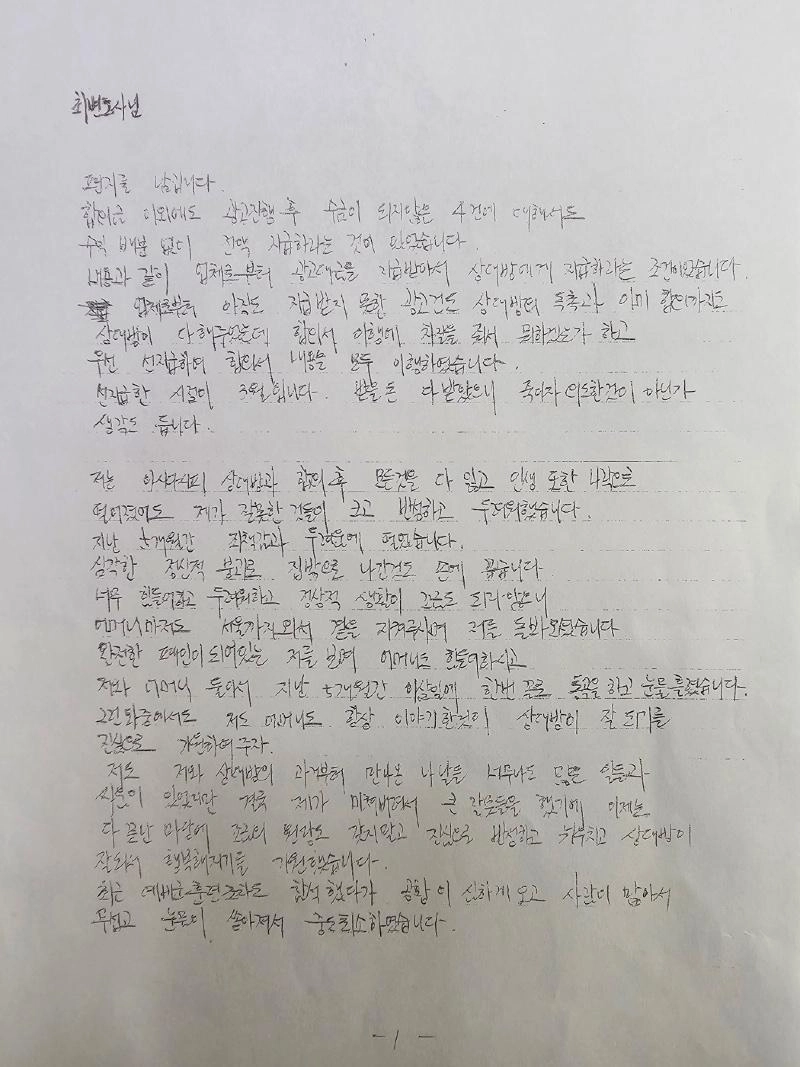 최변호사님
편지를 남깁니다.
합의금 이외에도 광고진행 후 수금이 되지않은 4건에 대해서도
수익 배분 없이 전액 지급하라는 것이 있었습니다.
내용과 같이 업체로부터 광고대금을 지급받아서 상대방에게 지급하라는 조건이었습니다.
업체로부터 아직도 지급 받지 못한 광고건도 상대방의 독촉과 이미 합의까지도
상대방이 다해주었는데 합의서 이행에 차질을 줘서 뭐하겠는가 하고
우선 선지급하여 합의서 내용을 모두 이행하였습니다.
선지급한 시점이 3월입니다. 받을돈 다 받았으니 죽이자 의도한것이 아닌가
생각도 듭니다.
저는 아시다시피 상대방과 합의 후 모든것을 다 잃고 인생 또한 나락으로
떨어졌어도 제가 잘못한 것들이 크고 반성하고 두려워했습니다.
지난 5개월간 죄책감과 두려움에 떨었습니다.
심각한 정신적 불괴로 집밖으로 나간건도 손에 꼽습니다
너무 힘들어하고 두려워하고 정상적 생활이 조금도 되지않으니
어머니마저도 서울까지 와서 곁을 지켜주시며 저를 돌봐왔습니다
완전한 폐인이 되어있는 저를 보며 어머니도 힘들어하시고
저와 어머니 둘이서 지난 5개월간 이삼일에 한번 꼴로 통곡을 하고 눈물을 흘렸습니다.
그런 와중에서도 저도 어머니도 항상 이야기한것이 상대방이 잘 되기를
진심으로 기원하여주자.
저도 저와 상대방의 과거부터 만나온 나날들 너무나도 많은 일들과
사연이 있었지만 결국 제가 미쳐버려서 큰 잘못들을 했기에 이제는
다 끝난 마당에 조금의 원망도 갖지말고 진심으로 반성하고 뉘우치고 상대방이
잘되서 행복해지기를 기원했습니다.
최근 예비군훈련조차도 참석했다가 공황이 심하게 오고 사람이 많아서
무섭고 눈물이 쏟아져서 중도퇴소하였습니다.
- 1 -